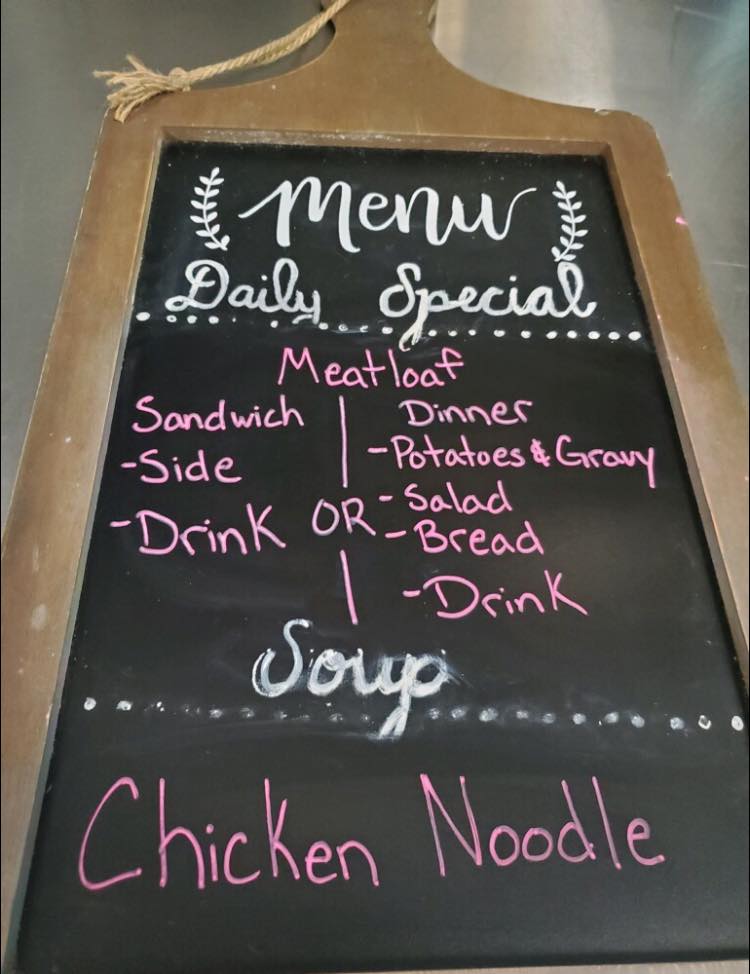 Menu
Daily Special
Meatloaf
Sandwich
-Side
-Drink
OR
Dinner
-Potatoes & Gravy
-Salad
-Bread
-Drink
Soup
Chicken Noodle